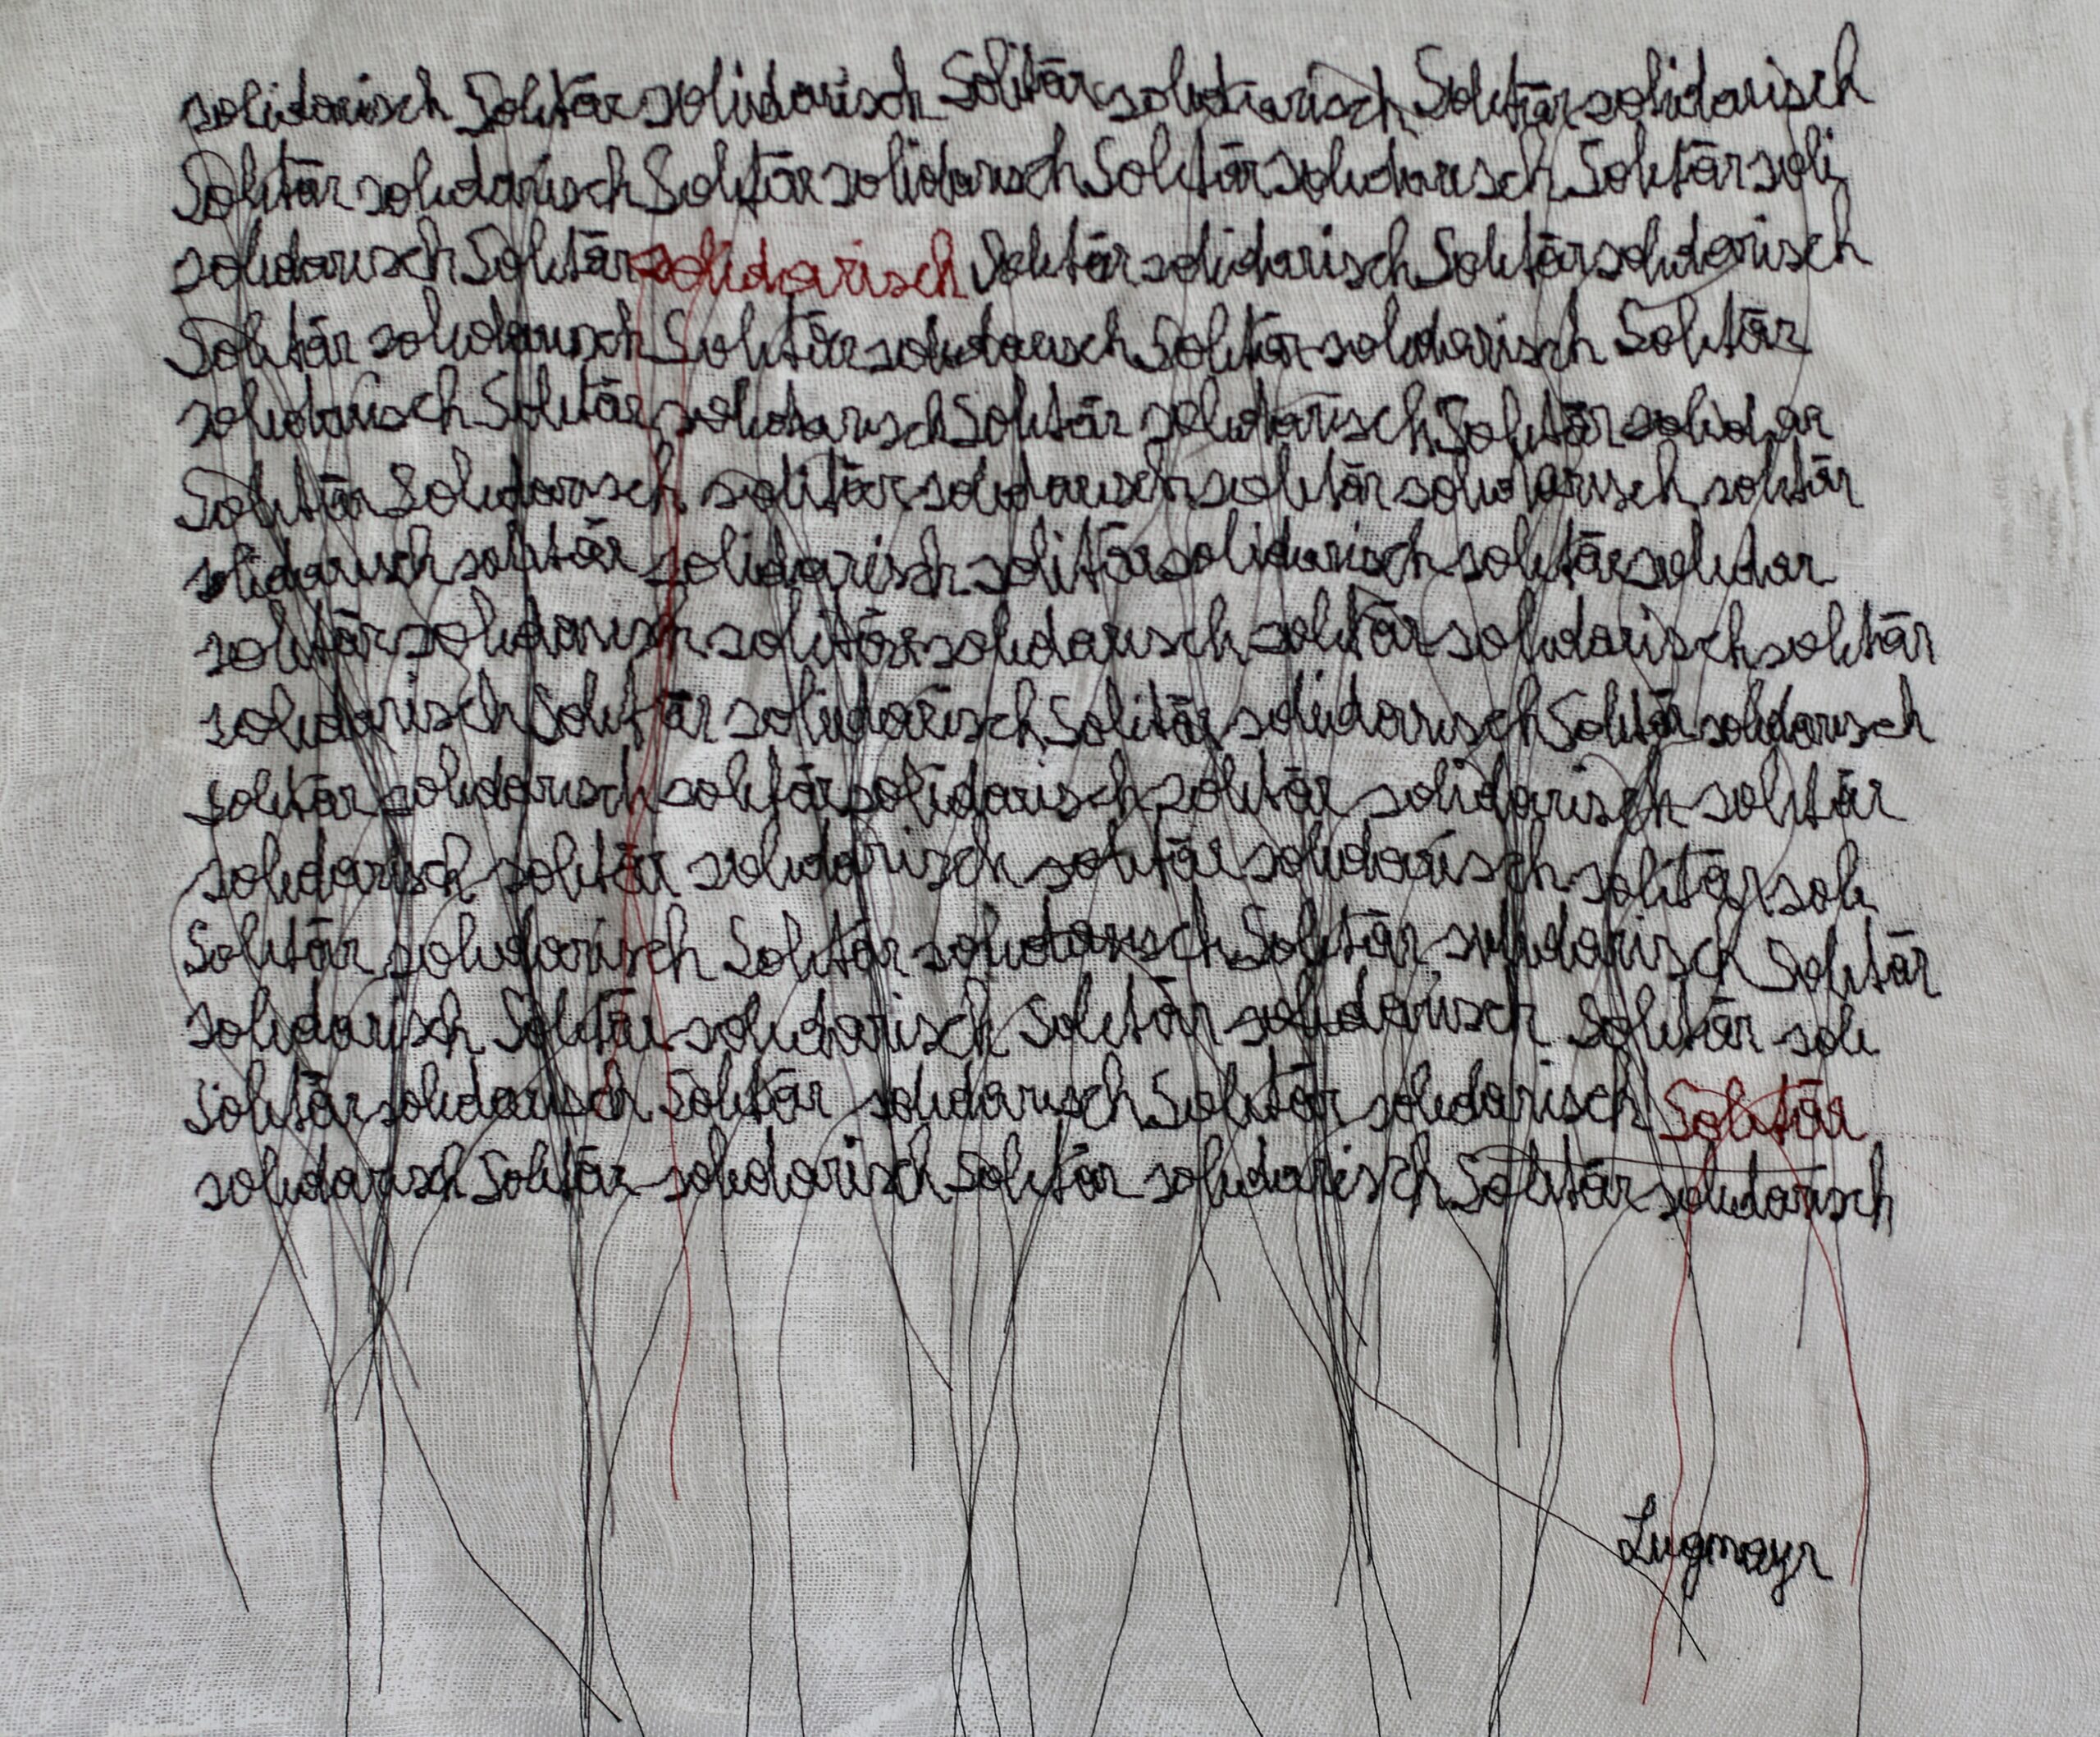 solidarisch Solitär solidarisch Solitär solidarisch Solitär solidarisch
Solitär solidarisch Solitär solidarisch Solitär solidarisch Solitär soli
solidarisch Solitär solidarisch Solitär solidarisch Solitär solidarisch
Solitär solidarisch Solitär solidarisch Solitär solidarisch Solitär
solidarisch Solitär solidarisch Solitär solidarisch Solitär solidar
Solitär Solidarisch solitär solidarisch solitär solidarisch solitär
solidarisch solitär solidarisch solitär solidarisch solitär solidar
solitär solidarisch solitär solidarisch solitär solidarisch solitär
solidarisch Solitär solidarisch Solitär solidarisch Solitär solidarisch
solitär solidarisch solitär solidarisch solitär solidarisch solitär
solidarisch solitär solidarisch solitär solidarisch solitär soli
Solitär solidarisch Solitär solidarisch Solitär solidarisch Solitär
solidarisch Solitär solidarisch Solitär solidarisch Solitär soli
Solitär solidarisch Solitär solidarisch Solitär solidarisch Solitär
solidarisch Solitär solidarisch Solitär solidarisch Solitär solidarisch
Lugmayr